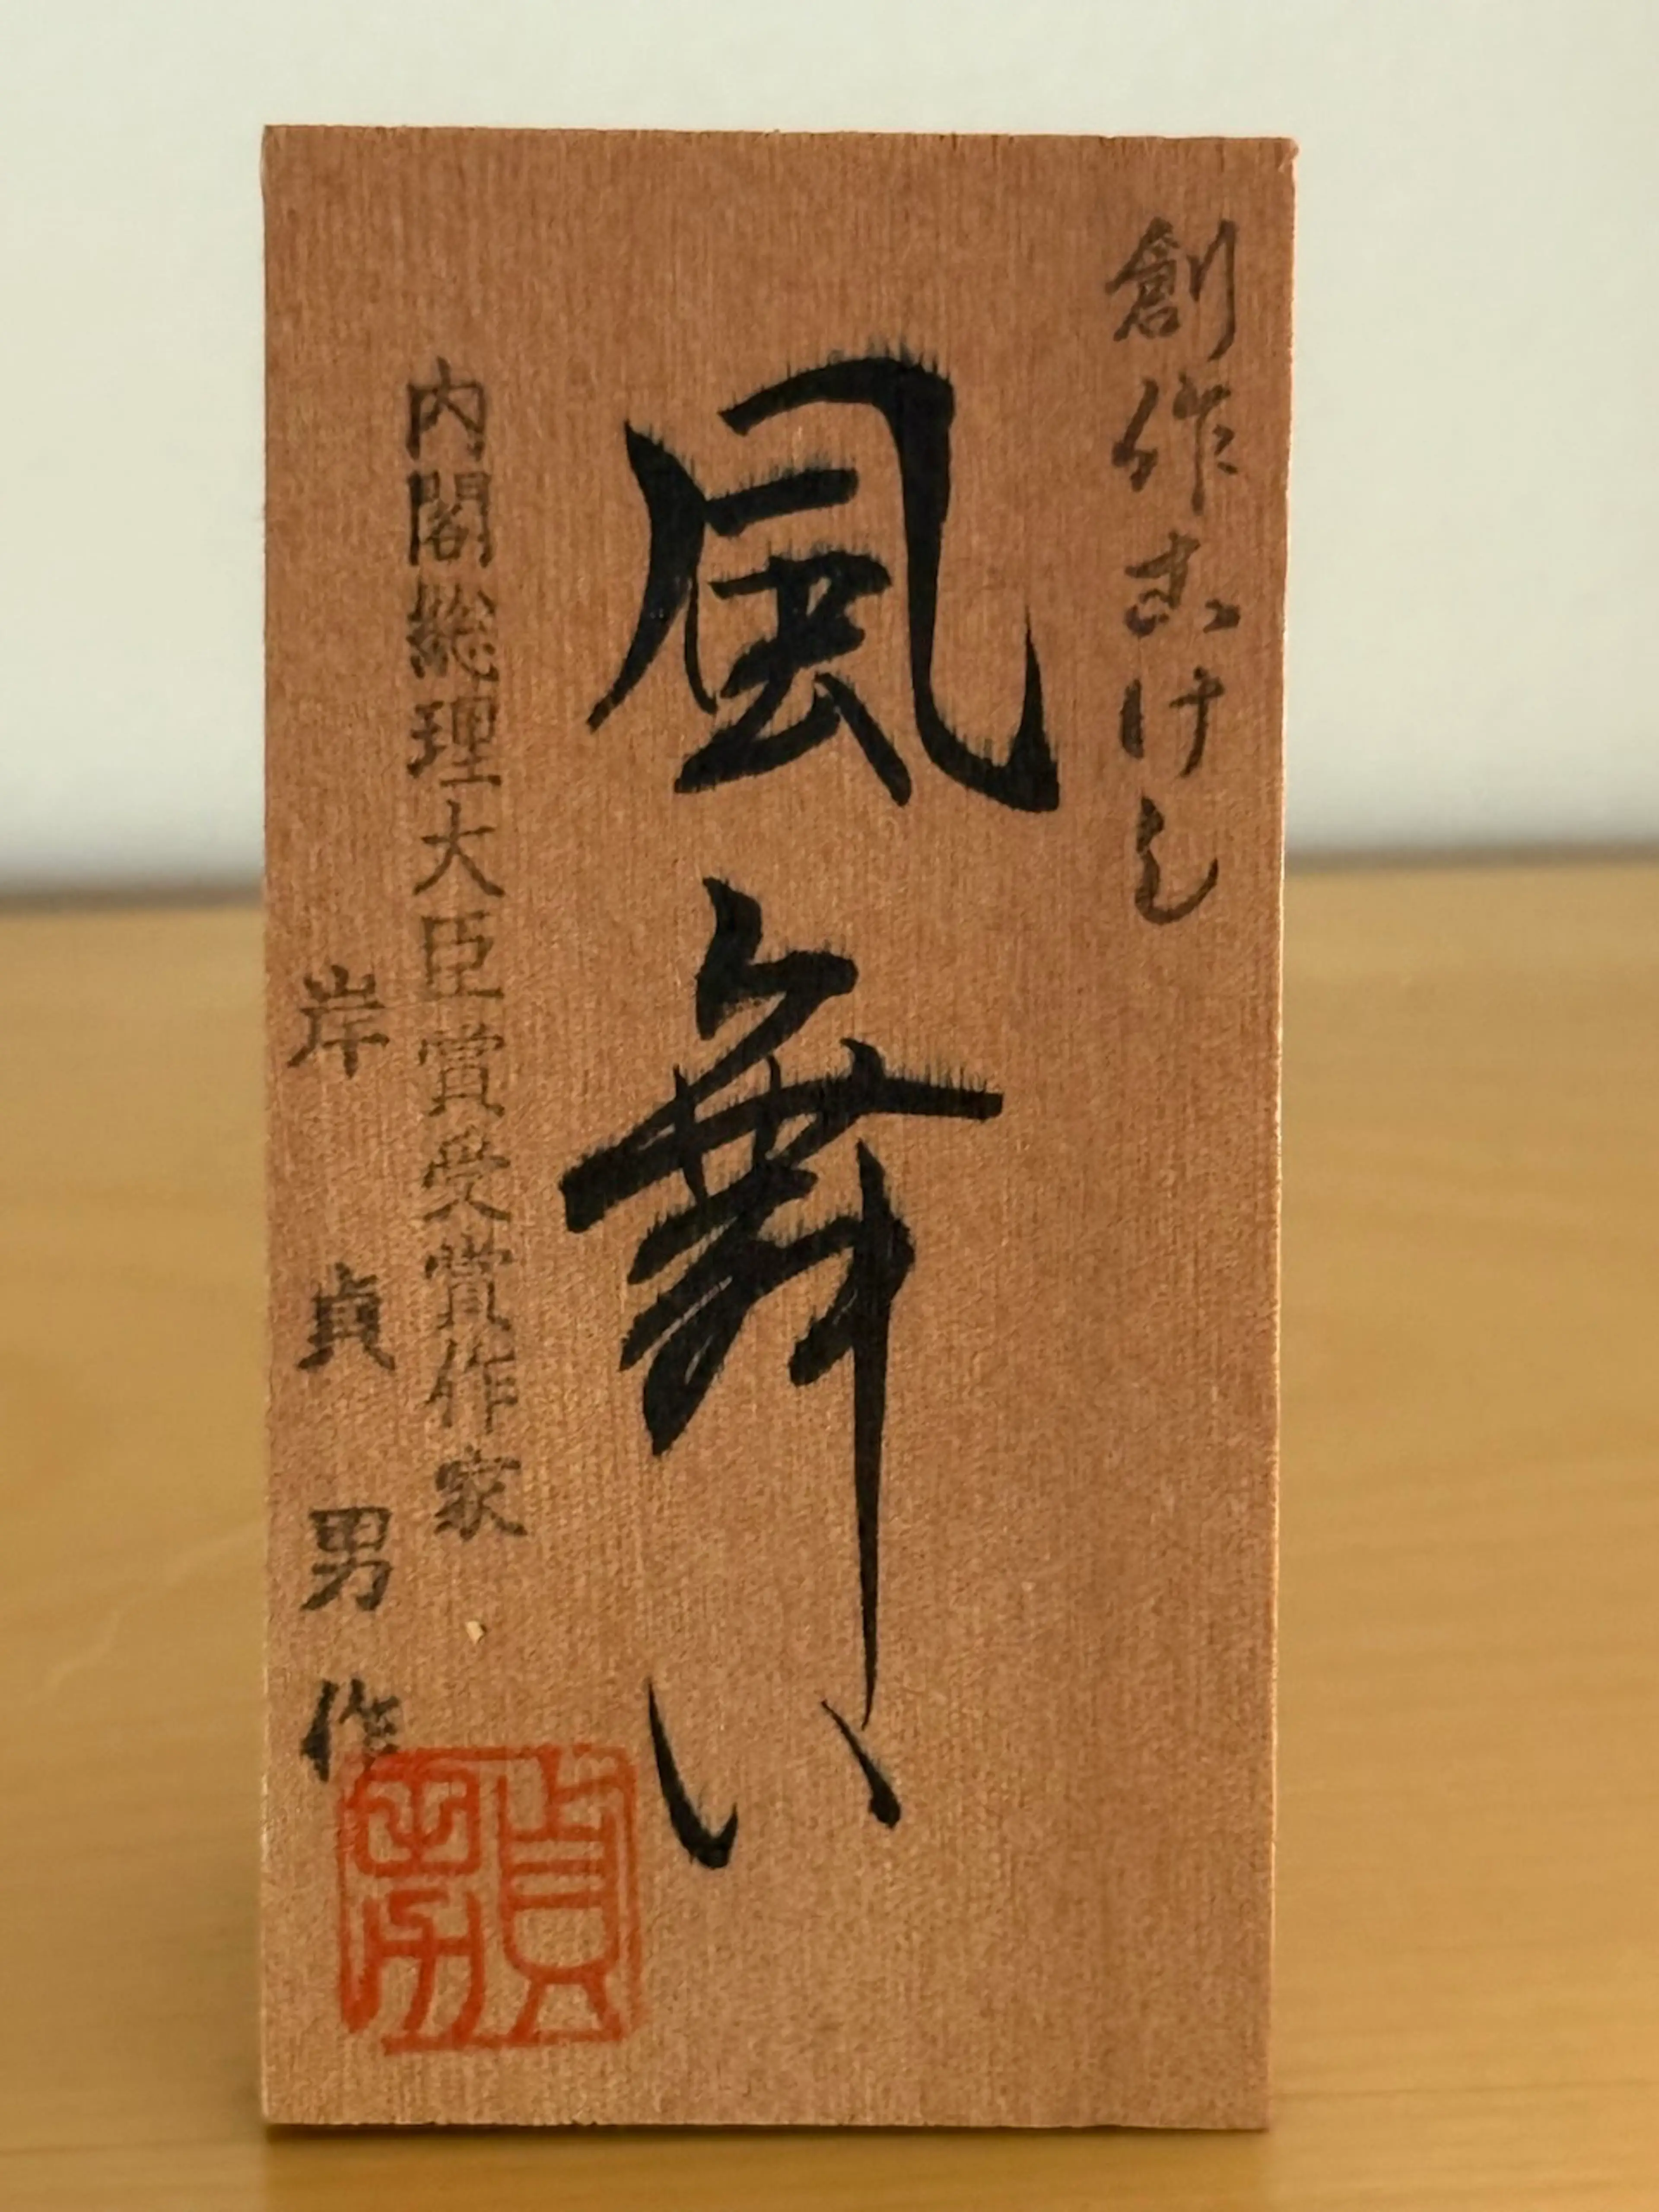 創作こけし
風舞い
内閣総理大臣賞受賞作家
岸貞男作
貞男